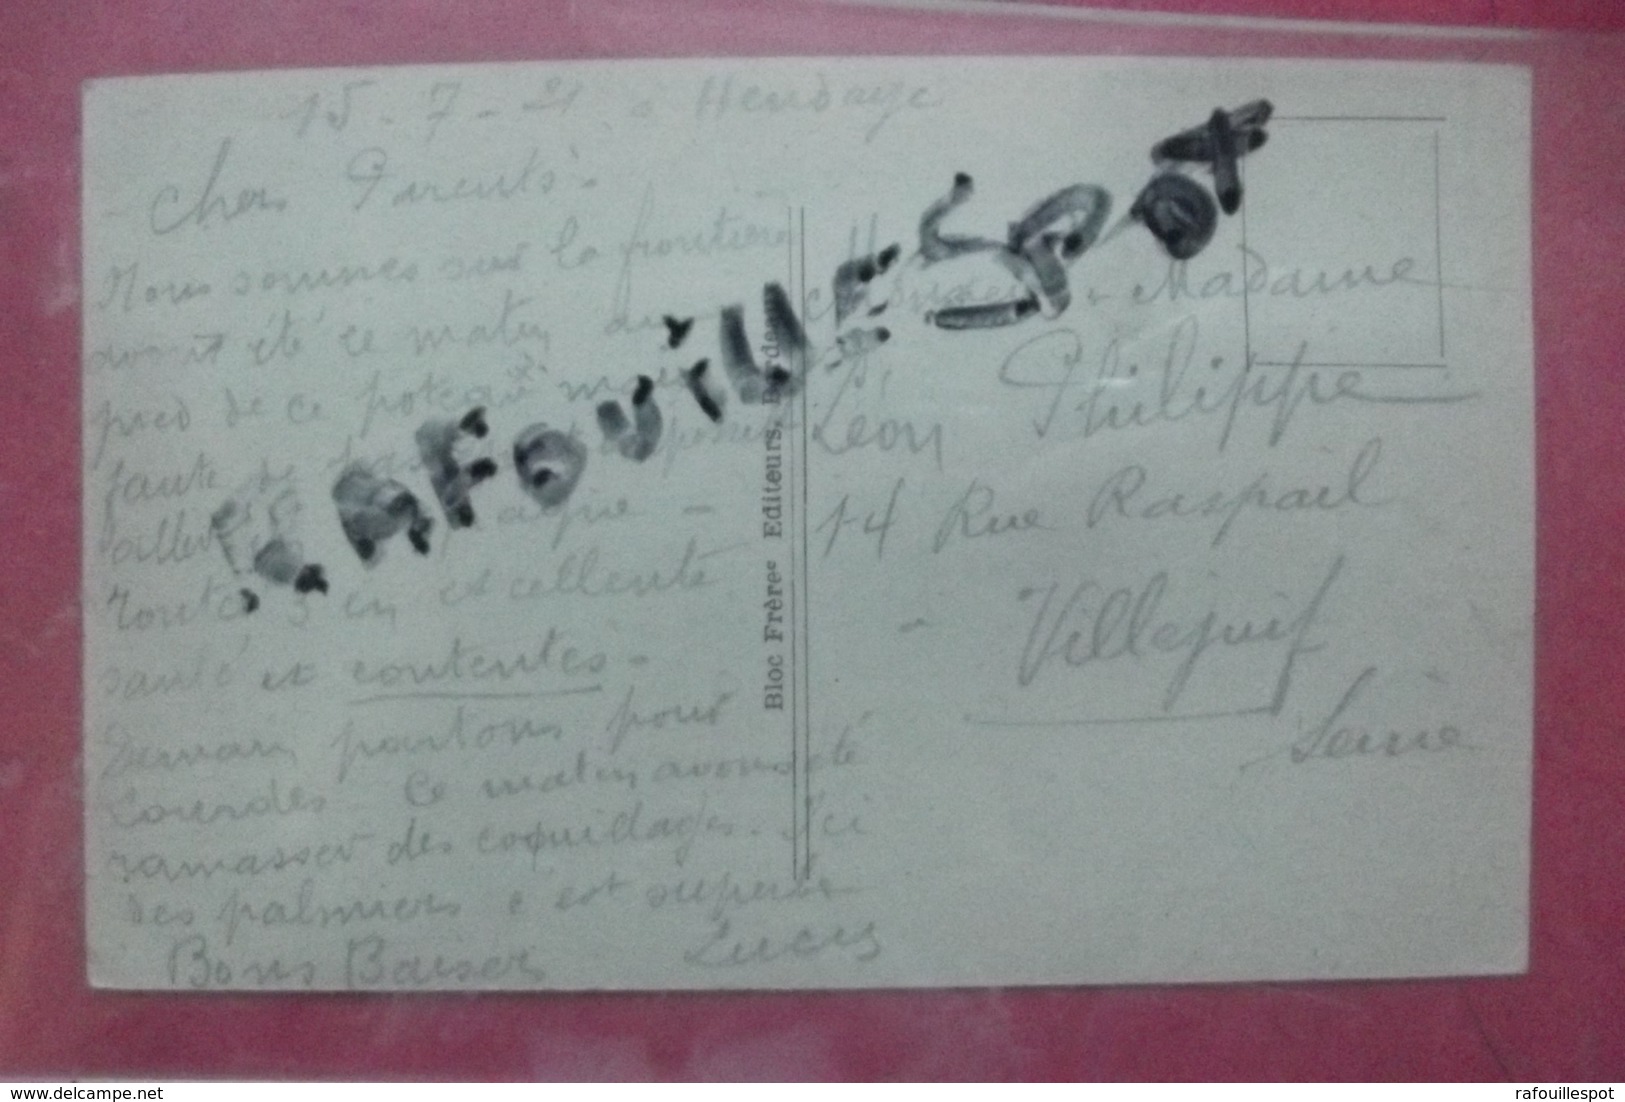 15 - 7 - 21 à Hendaye
Chers Parents -
Nous sommes sur la frontière
avons été ce matin au
pied de ce poteau mais
faute de
aller
toutes 3 en excellente
santé et contentes -
Demain partons pour
Lourdes - Ce matin avons été
ramasser des coquillages. Ici
des palmiers c'est superbe
Bons Baisers Lucie
Bloc Frères Editeurs,
RAFOUILLESPOT
Madame
Léon Philippe
14 Rue Raspail
Villejuif
Seine
rafouillespot